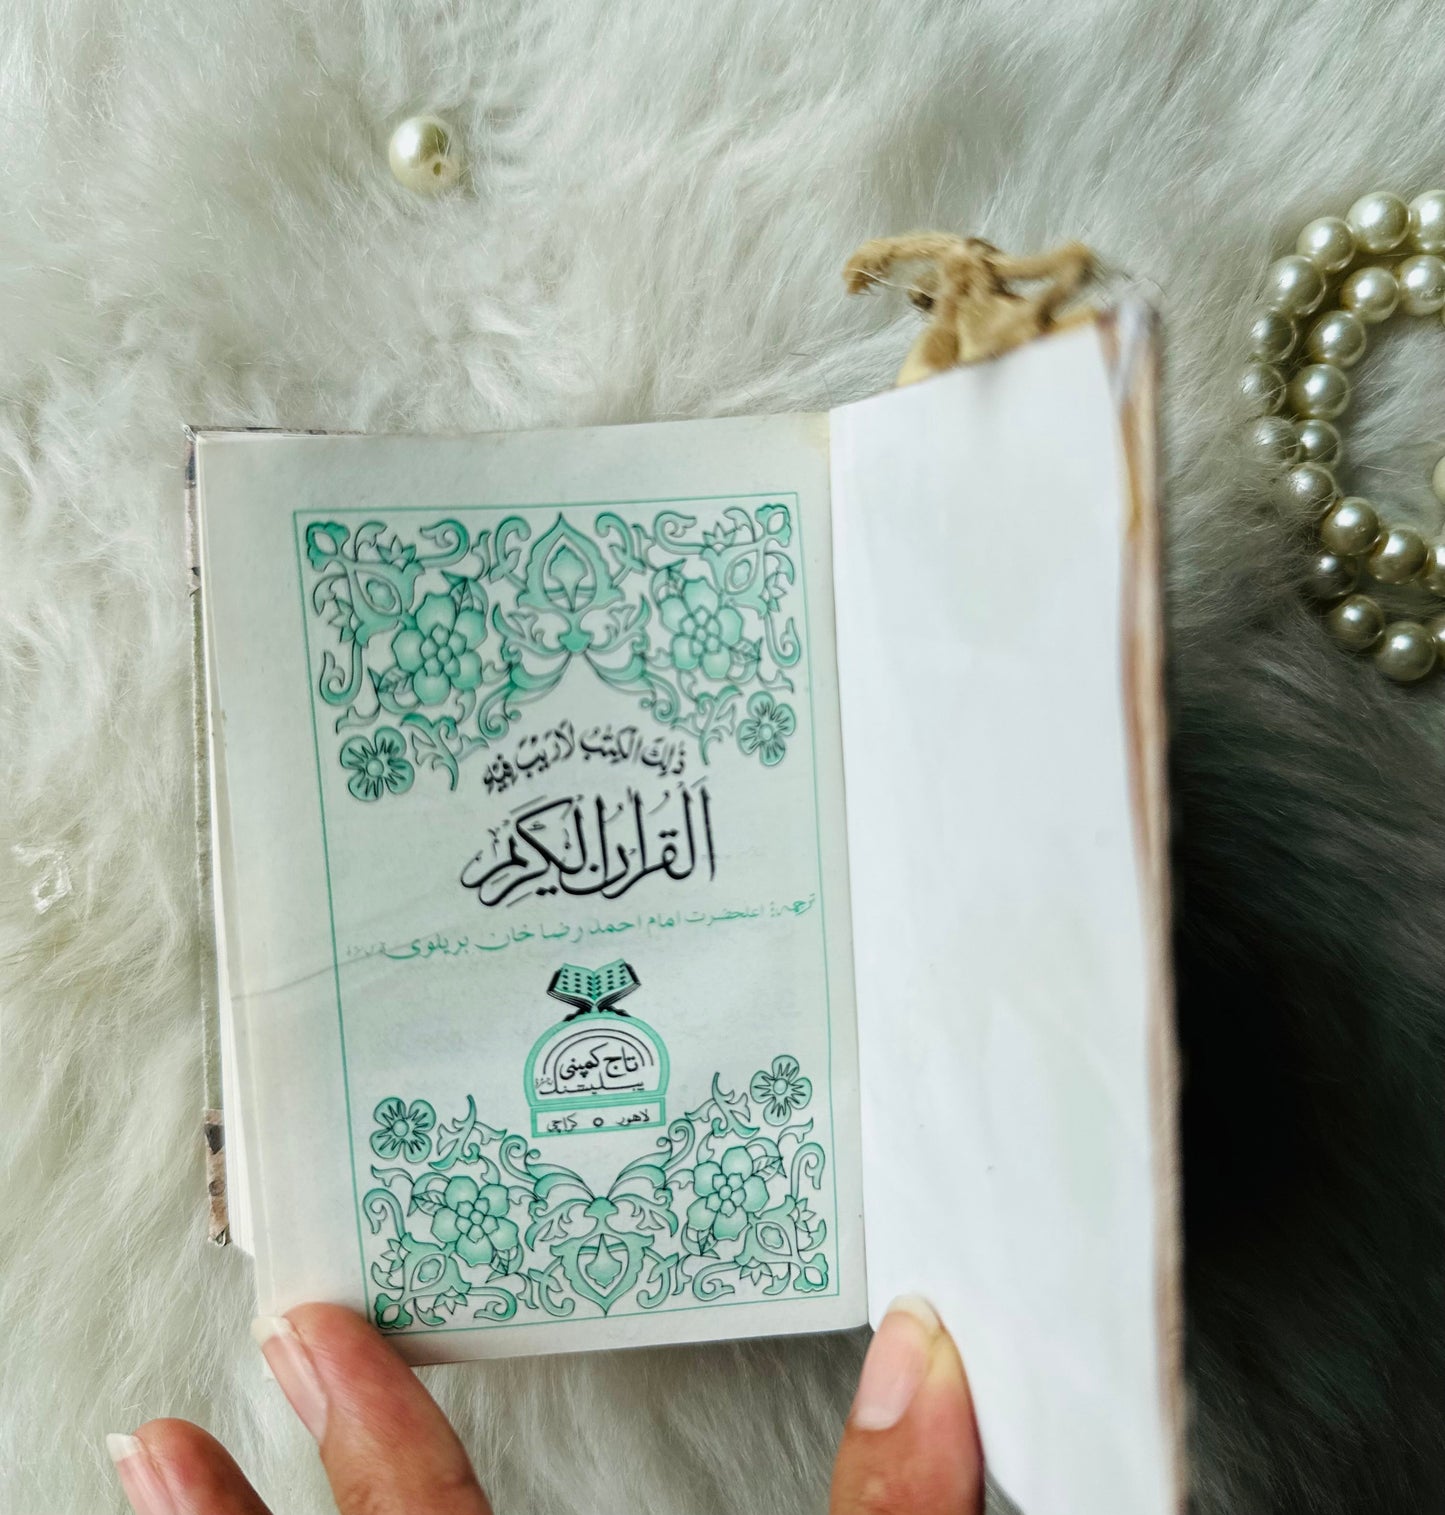 ذٰلِكَ الْكِتٰبُ لَارَيْبَ فِيْهِ
اَلْقُرْاٰنُ الْكَرِيْم
ترجمۂ اعلحضرت امام احمد رضا خان بریلوی
تاج کمپنی
پبلیشنگ
لاهور ٥ کراچی